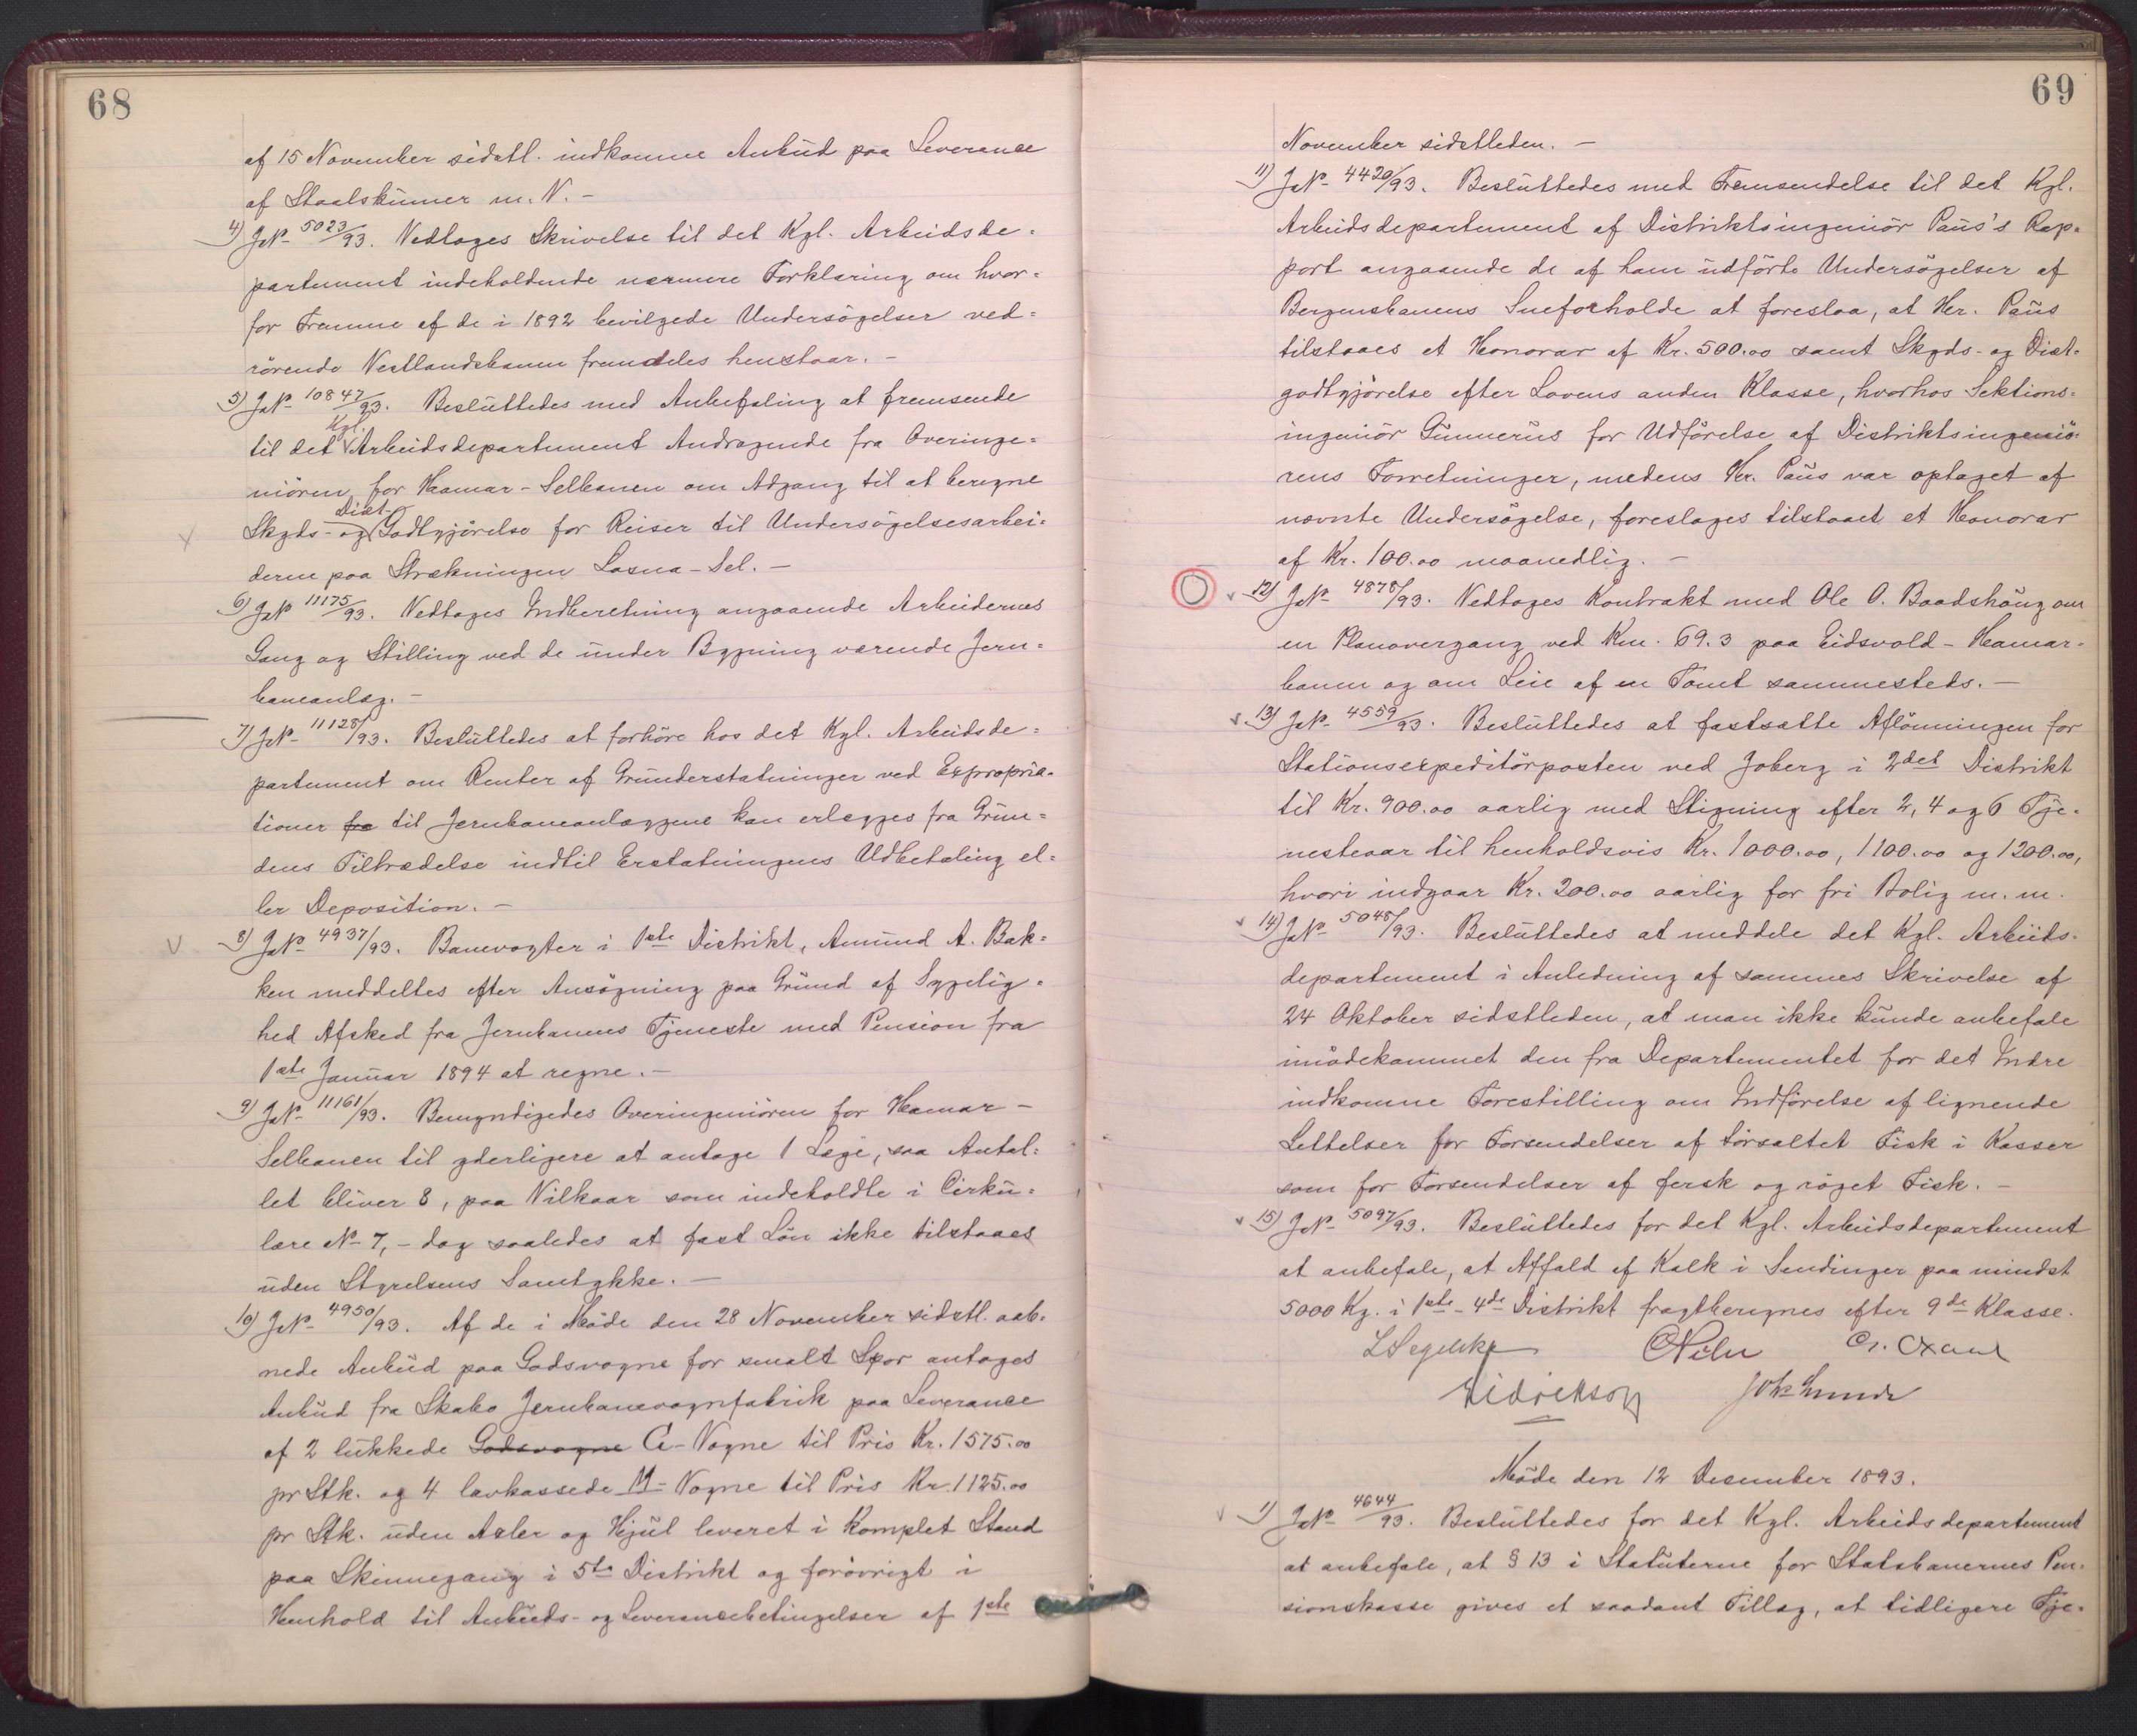 68
af 15 November sidstl. indkomne Anbud paa Leverance
af Staalskinner m. N. -
4) JN° 5023/93. Vedtoges Skrivelse til det Kgl. Arbeidsde=
partement indeholdende nærmere Forklaring om hvor=
for Fremme af de i 1892 bevilgede Undersögelser ved=
rörende Vestlandsbanen fremdeles henstaar. -
5) JN° 10847/93. Besluttedes med Anbefaling at fremsende
Kgl.
til det Arbeidsdepartement Andragende fra Overinge=
niören for Hamar-Selbanen om Adgang til at beregne
Diæt-
Skyds- og Godtgjörelse for Reiser til Undersögelsesarbei=
derne paa Strækningen Losna-Sel. -
6) JN° 11175/93. Vedtoges Indberetning angaaende Arbeidernes
Gang og Stilling ved de under Bygning værende Jern=
baneanlæg. -
7) JN° 11128/93. Besluttedes at forhöre hos det Kgl. Arbeidsde=
partement om Renter af Grunderstatninger ved Expropria=
tioner fra til Jernbaneanlæggene kan erlægges fra Grun=
dens Tiltrædelse indtil Erstatningens Udbetaling el=
ler Deposition. -
8) JN° 4937/93. Banevogter i 1ste Distrikt, Amund A. Bak=
ken meddeltes efter Ansögning paa Grund af Sygelig=
hed Afsked fra Jernbanens Tjeneste med Pension fra
1ste Januar 1894 at regne. -
9) JN° 11161/93. Bemyndigedes Overingeniören for Hamar-
Selbanen til yderligere at antage 1 Læge, saa Antal=
let bliver 8, paa Vilkaar som indeholdte i Cirku=
lære N° 7, - dog saaledes at fast Lön ikke tilstaaes
uden Styrelsens Samtykke. -
10) JN° 4950/93. Af de i Möde den 28 November sidstl. aab=
nede Anbud paa Godsvogne for smalt Spor antoges
Anbud fra Skabo Jernbanevognfabrik paa Leverance
af 2 lukkede Godsvogne G-Vogne til Pris Kr. 1575.00
pr Stk. og 4 lavkassede M-Vogne til Pris Kr. 1125.00
pr Stk. uden Axler og Hjul leveret i komplet Stand
paa Skinnegang i 5te Distrikt og forövrigt i
Henhold til Anbuds- og Leverancebetingelser af 1ste
69
November sidstleden. -
11) JN° 4420/93. Besluttedes med Fremsendelse til det Kgl.
Arbeidsdepartement af Distriktsingeniör Paus's Rap=
port angaaende de af ham udförte Undersögelser af
Bergensbanens Sneforholde at foreslaa, at Hr. Paus
tilstaaes et Honorar af Kr. 500.00 samt Skyds- og Diæt=
godtgjörelse efter Lovens anden Klasse, hvorhos Sektions=
ingeniör Gunnerus for Udförelse af Distriktsingeniö=
rens Forretninger, medens Hr. Paus var optaget af
nævnte Undersögelse, foreslages tilstaaet et Honorar
af Kr. 100.00 maanedlig. -
12) JN° 4878/93. Vedtoges Kontrakt med Ole O. Baadshaug om
en Planovergang ved Km. 69.3 paa Eidsvold-Hamar-
banen og om Leie af en Tomt sammesteds. -
13) JN° 4559/93. Besluttedes at fastsætte Aflönningen for
Stationsexpeditörposten ved Joberg i 2det Distrikt
til Kr. 900.00 aarlig med Stigning efter 2, 4 og 6 Tje=
nesteaar til henholdsvis Kr. 1000.00, 1100.00 og 1200.00,
hvori indgaar Kr. 200.00 aarlig for fri Bolig m. m.
14) JN° 5048/93. Besluttedes at meddele det Kgl. Arbeids=
departement i Anledning af sammes Skrivelse af
24 Oktober sidstleden, at man ikke kunde anbefale
imödekommet den fra Departementet for det Indre
indkomne Forestilling om Indförelse af lignende
Lettelser for Forsendelser af törsaltet Fisk i Kasser
som for Forsendelser af fersk og röget Fisk. -
15) JN° 5097/93. Besluttedes for det Kgl. Arbeidsdepartement
at anbefale, at Affald af Kalk i Sendinger paa mindst
5000 Kg. i 1ste - 4de Distrikt fragtberegnes efter 9de Klasse.
L Segelcke
Möde den 12 Desember 1893.
1) JN° 4644/93. Besluttedes for det Kgl. Arbeidsdepartement
at anbefale, at § 13 i Statuterne for Statsbanernes Pen=
sionskasse gives et saadant Tillæg, at tidligere Tje=